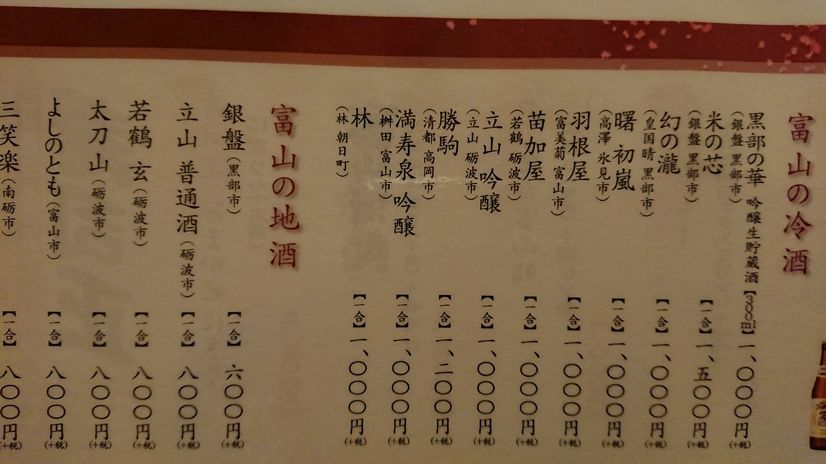 富山の冷酒
黒部の華 吟醸生貯蔵酒【300ml】一、〇〇〇円(+税)
(銀盤 黒部市)
米の芯【一合】一、五〇〇円(+税)
(銀盤 黒部市)
幻の瀧【一合】一、〇〇〇円(+税)
(皇国晴 黒部市)
曙 初嵐【一合】一、〇〇〇円(+税)
(高澤 氷見市)
羽根屋【一合】一、〇〇〇円(+税)
(富美菊 富山市)
苗加屋【一合】一、〇〇〇円(+税)
(若鶴 砺波市)
立山 吟醸【一合】一、〇〇〇円(+税)
(立山 砺波市)
勝駒【一合】一、二〇〇円(+税)
(清都 高岡市)
満寿泉 吟醸【一合】一、〇〇〇円(+税)
(桝田 富山市)
林【一合】一、〇〇〇円(+税)
(林 朝日町)
富山の地酒
銀盤(黒部市)【一合】六〇〇円(+税)
立山 普通酒(砺波市)【一合】八〇〇円(+税)
若鶴 玄(砺波市)【一合】八〇〇円(+税)
太刀山(砺波市)【一合】八〇〇円(+税)
よしのとも(富山市)【一合】八〇〇円(+税)
三笑楽(南砺市)【一合】八〇〇円(+税)